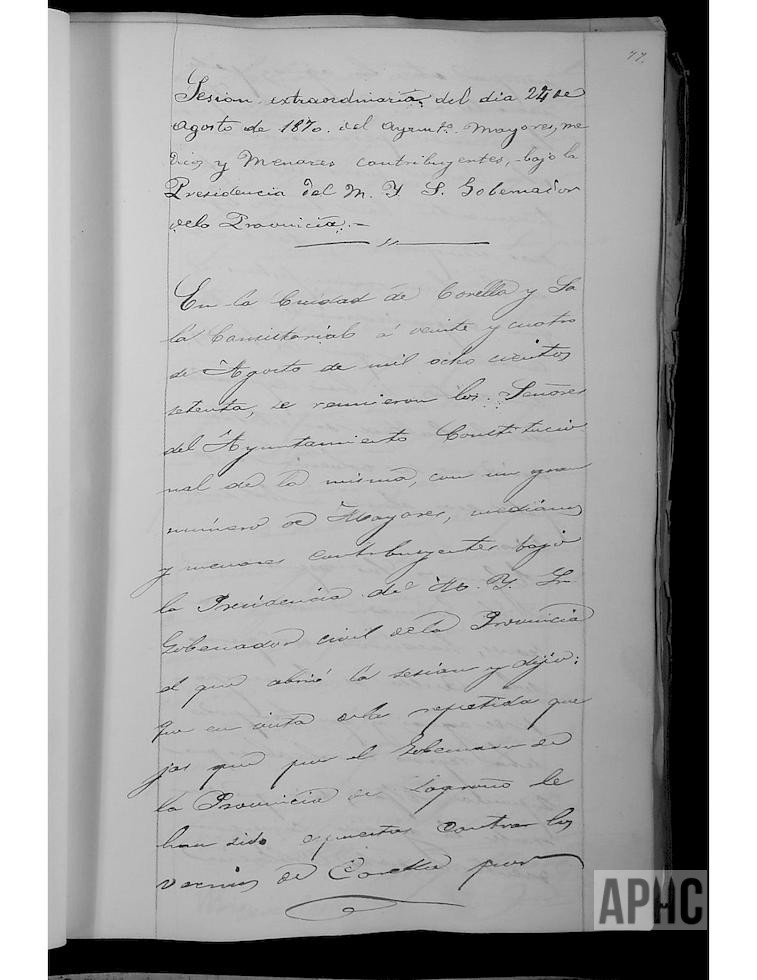 77.
Sesion extraordinaria del dia 24 de
Agosto de 1870. del Ayunto. Mayores, me
dios y Menores contribuyentes, bajo la
Presidencia del M. Y. S. Gobernador
dela Provincia.-
En la Ciudad de Corella y Sa
la Consistorial á veinte y cuatro
de Agosto de mil ocho cientos
setenta, se reunieron los Señores
del Ayuntamiento Constitucio
nal de la misma, con un gran
número de Mayores, medianos
y menores contribuyentes bajo
la Presidencia del M. Y. Sr.
Gobernador civil dela Provincia
el que abrió la sesion y dijo:
Que en vista dela repetida que
jas que por el Gobernador de
la Provincia de Logroño le
han sido espuestas contra los
vecinos de Corella por
APHC